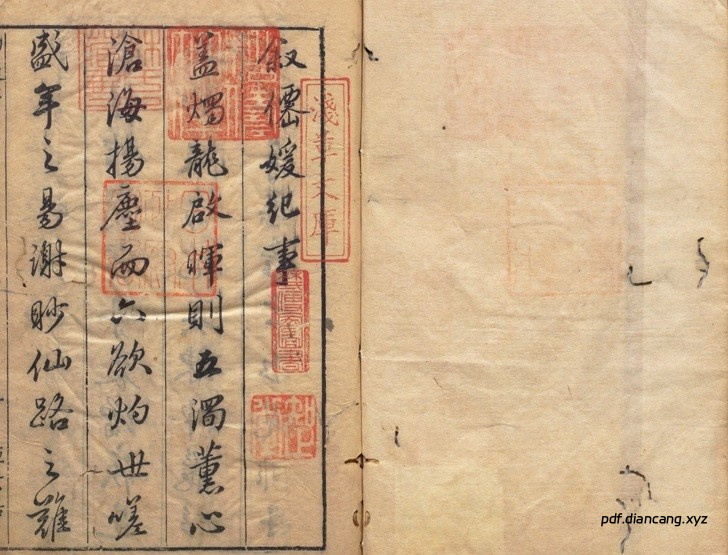 叙僊媛紀事
蓋燭龍啟暉則五濁薰心
滄海揚塵而六欲灼世嗟
盛年之易謝眇仙路之難
淺草文庫
pdf.diancang.xyz